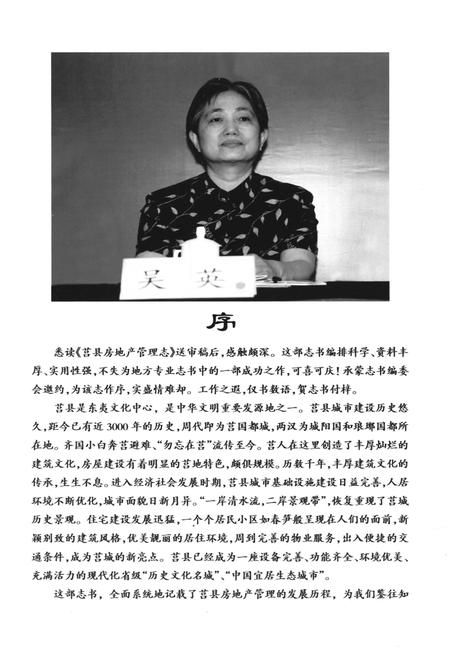 吴英
序
悉读《莒县房地产管理志》送审稿后，感触颇深。这部志书编排科学、资料丰
厚、实用性强，不失为地方专业志书中的一部成功之作，可喜可庆！承蒙志书编委
会邀约，为该志作序，实盛情难却。工作之遐，仅书数语，贺志书付梓。
莒县是东夷文化中心，是中华文明重要发源地之一。莒县城市建设历史悠
久，距今已有近3000年的历史，周代即为莒国都城，两汉为城阳国和琅琊国都所
在地。齐国小白奔莒避难、“勿忘在莒”流传至今。莒人在这里创造了丰厚灿烂的
建筑文化，房屋建设有着明显的莒地特色，颇俱规模。历数千年，丰厚建筑文化的
传承，生生不息。进入经济社会发展时期，莒县城市基础设施建设日益完善，人居
环境不断优化，城市面貌日新月异。“一岸清水流，二岸景观带”，恢复重现了莒城
历史景观。住宅建设发展迅猛，一个个居民小区如春笋般呈现在人们的面前，新
颖别致的建筑风格，优美靓丽的居住环境，周到完善的物业服务，出入便捷的交
通条件，成为莒城的新亮点。莒县已经成为一座设备完善、功能齐全、环境优美、
充满活力的现代化省级“历史文化名城”、“中国宜居生态城市”。
这部志书，全面系统地记载了莒县房地产管理的发展历程，为我们鉴往知